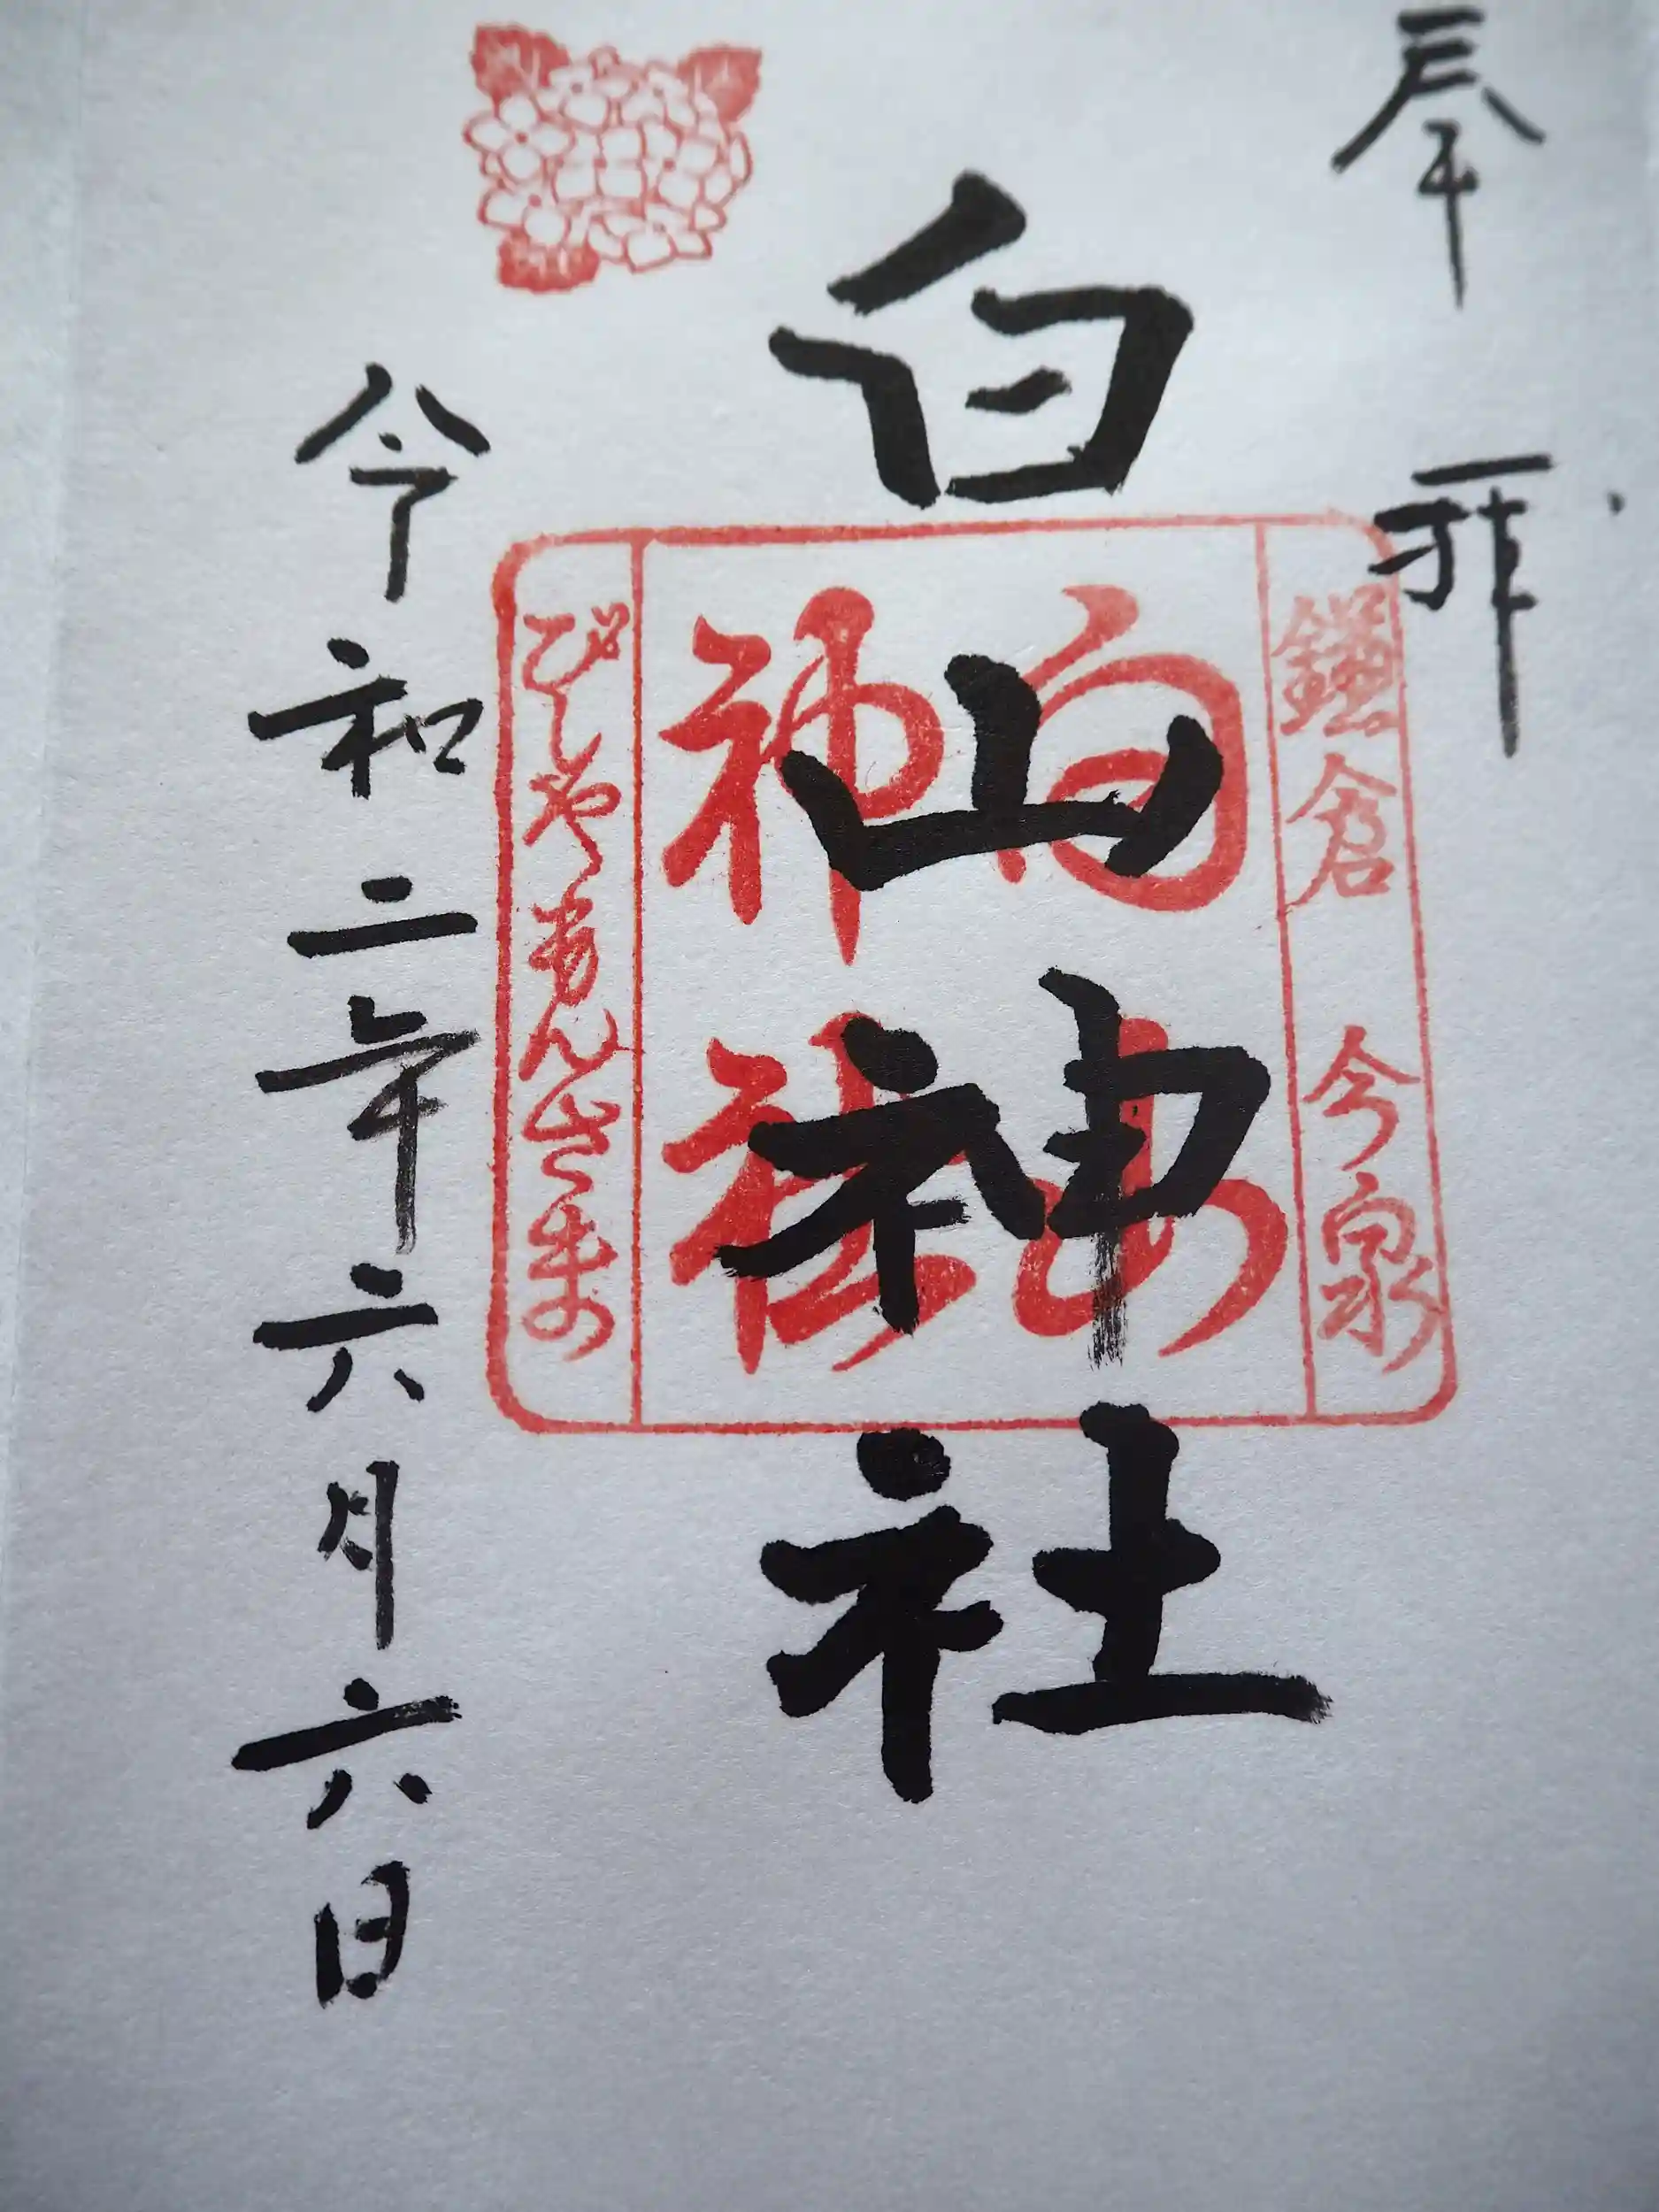 奉拝
白山神社
鎌倉 今泉
白山
神社
びしゃもんさま
令和二年六月六日